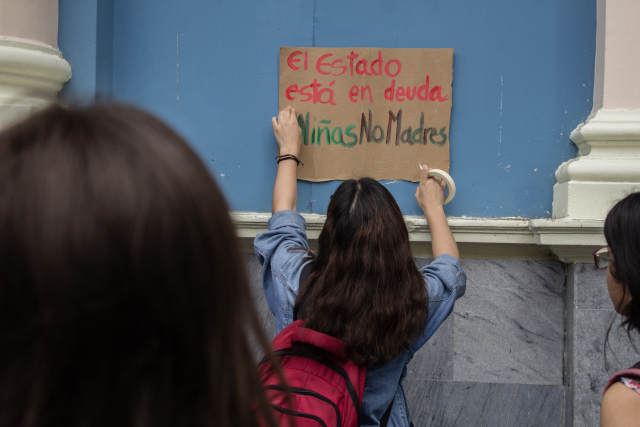 El Estado
está en deuda
NiñasNoMadres